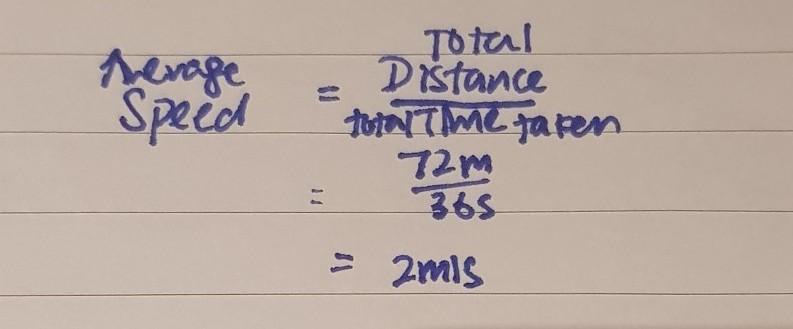 Average Speed = Total Distance / total Time taken
= 72m / 36s
= 2m/s